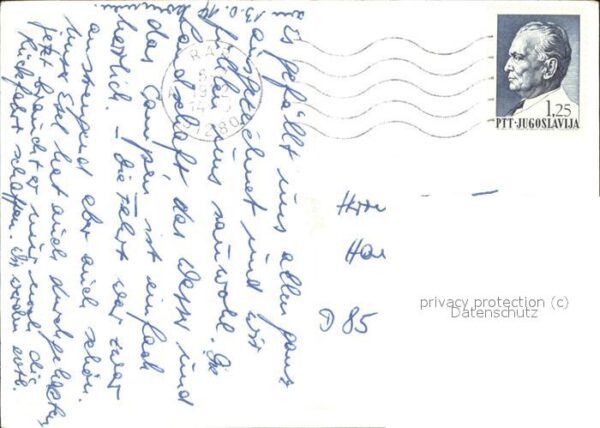 Es gefällt uns allen ganz
ausgezeichnet und wir
fühlen uns sauwohl. Die
Landschaft das Wasser und
das Campen ist einfach
herrlich. – Die Fahrt war zwar
anstrengend aber auch schön.
Unser Esel hat auch durchgehalten
jetzt braucht er nur noch die
Rückfahrt schaffen. Wir werden evtl.
am 13.8.
kommen.
RAB
51280
1,25
PTT-JUGOSLAVIJA
Herrn
Han
D 85
privacy protection (c)
Datenschutz